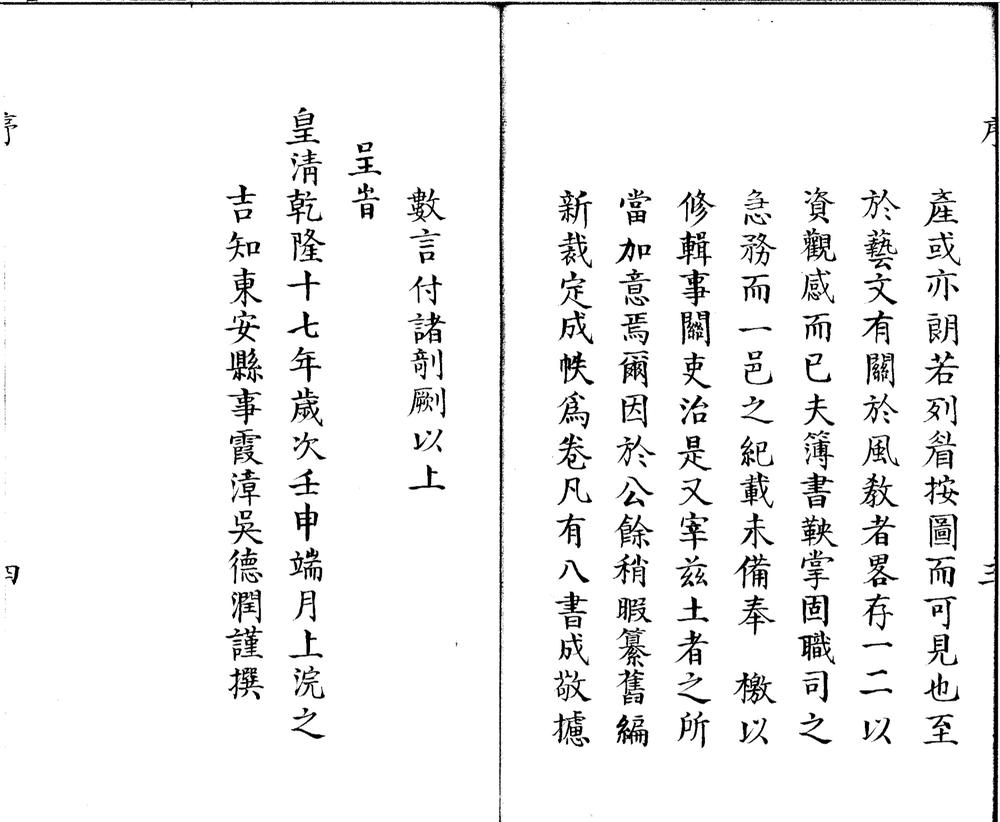 序
產或亦朗若列眉按圖而可見也至
於藝文有關於風敎者畧存一二以
資觀感而已夫簿書鞅掌固職司之
急務而一邑之紀載未備奉　檄以
修輯事關吏治是又宰兹土者之所
當加意焉爾因於公餘稍暇纂舊編
新裁定成帙爲卷凡有八書成敬攄
三
數言付諸剞劂以上
呈旹
皇淸乾隆十七年歲次壬申端月上浣之
吉知東安縣事霞漳吳德潤謹撰
序
四